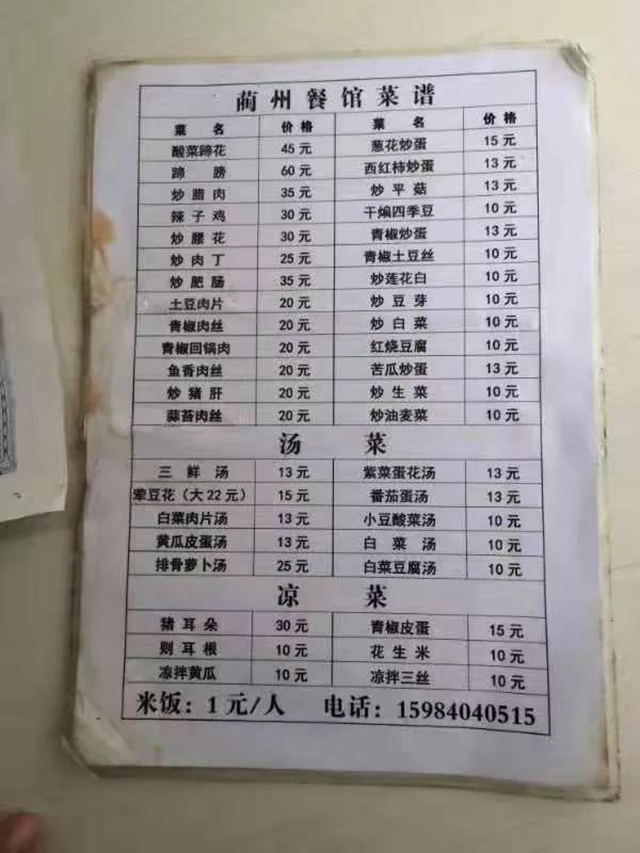 蔺州餐馆菜谱
菜 名 价 格 菜 名 价 格
酸菜蹄花 45 元 葱花炒蛋 15 元
蹄 膀 60 元 西红柿炒蛋 13 元
炒 腊 肉 35 元 炒 平 菇 13 元
辣 子 鸡 30 元 干煸四季豆 10 元
炒 腰 花 30 元 青椒炒蛋 13 元
炒 肉 丁 25 元 青椒土豆丝 10 元
炒 肥 肠 35 元 炒莲花白 10 元
土豆肉片 20 元 炒 豆 芽 10 元
青椒肉丝 20 元 炒 白 菜 10 元
青椒回锅肉 20 元 红烧豆腐 10 元
鱼香肉丝 20 元 苦瓜炒蛋 13 元
炒 猪 肝 20 元 炒 生 菜 10 元
蒜苔肉丝 20 元 炒油麦菜 10 元
汤 菜
三 鲜 汤 13 元 紫菜蛋花汤 13 元
荤豆花（大 22 元） 15 元 番茄蛋汤 13 元
白菜肉片汤 13 元 小豆酸菜汤 10 元
黄瓜皮蛋汤 13 元 白 菜 汤 10 元
排骨萝卜汤 25 元 白菜豆腐汤 10 元
凉 菜
猪 耳 朵 30 元 青椒皮蛋 15 元
则 耳 根 10 元 花 生 米 10 元
凉拌黄瓜 10 元 凉拌三丝 10 元
米饭：1 元/人 电话：15984040515